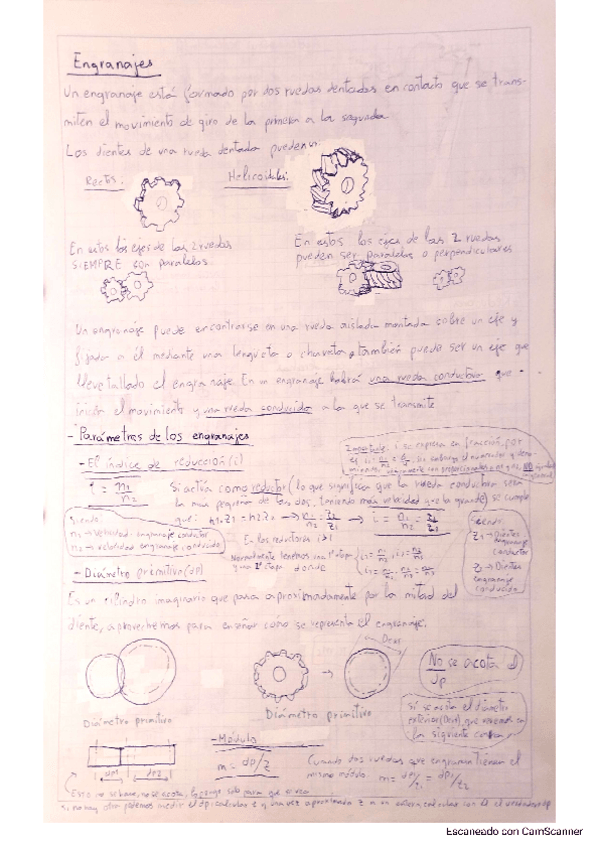 Engranajes
Un engranaje está formado por dos ruedas dentadas en contacto que se trans-
miten el movimiento de giro de la primera a la segunda
Los dientes de una rueda dentada pueden
Rectos:
Helicoidales:
En estos los ejes de las 2 ruedas
SIEMPRE son paralelos
En estos los ejes de las 2 ruedas
pueden ser paralelos o perpendiculares
Un engranaje puede encontrarse en una rueda aislada montada sobre un eje y
fijada a él mediante una lengueta o chaveta, también puede ser un eje que
lleve tallado el engranaje. En un engranaje habrá una rueda conductora que
inicia el movimiento y una rueda conducida a la que se transmite
- Parámetros de los engranajes
Importante: i se expresa en fracción por
- El índice de reducción (i)
i = n1/n2
Si actúa como reductor (lo que significa que la rueda conductora será
la más pequeña de las dos, teniendo más velocidad que la grande) se cumple
que: n1.z1 = n2.z2 → n1/n2 = z2/z1 → i = n1/n2 = z2/z1
Siendo:
n1 → velocidad engranaje conductor
n2 → velocidad engranaje conducido
En los reductores i>1
Normalmente tenemos una 1ª etapa
y una 2ª etapa donde
Siendo:
z1 → Dientes
engranaje
conductor
z2 → Dientes
engranaje
conducido
- Diámetro primitivo (dp)
Es un cilindro imaginario que pasa aproximadamente por la mitad del
diente, aprovechemos para enseñar cómo se representa el engranaje.
Dext
No se acota el
dp
Diámetro primitivo
Diámetro primitivo
sí se acota el diámetro
exterior (Dext) que
la siguiente
dp1 dp2
- Módulo
m = dp/z
Cuando dos ruedas que engranan tienen el
mismo módulo. m = dp1/z1 = dp2/z2
Esto no se hace, no se acota, lo pongo solo para que
Escaneado con CamScanner